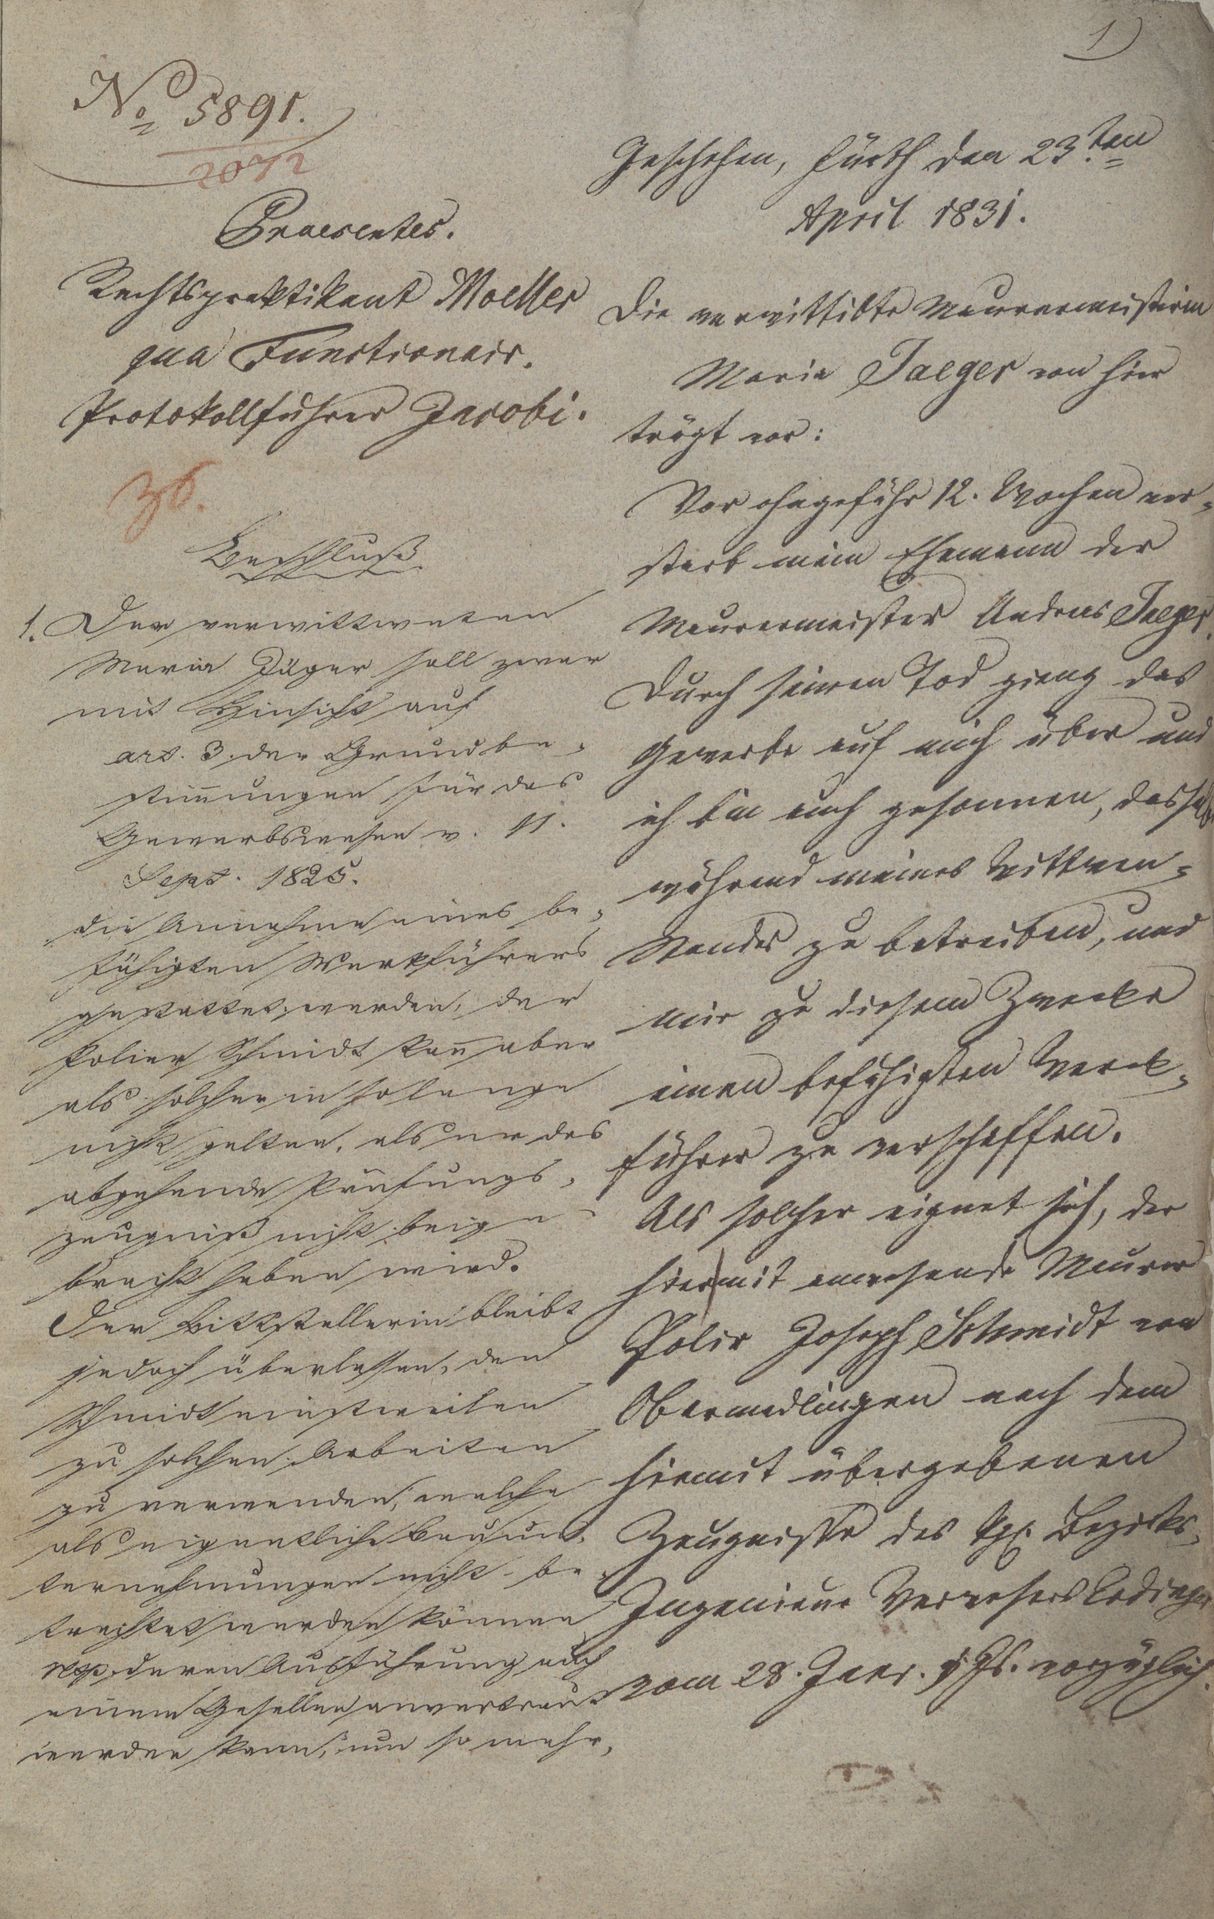 1
No 5891.
2072
Praesentes.
Rechtspraktikant Moeller
qua Functionair.
Protokollführer Jacobi.
36.
Beschluß.
1. Der verwittweten
Maria Jäger soll zwar
mit Hinsicht auf
art. 3. der Grundbe-
stim̄ungen für das
Gewerbswesen v. 11.
Sept. 1825.
die Annahme eines be-
fähigten Werkführers
gestattet werden, der
Polier Schmidt kan̄ aber
als solcher in so lange
nicht gelten, als er das
abgehende Prüfungs-
zeugniß nicht beige-
bracht haben wird.
Der Bittstellerin bleibt
jedoch überlassen, den
Schmidt einstweilen
zu solchen Arbeiten
zu verwenden, welche
als eigentliche Bauun-
ternehmungen nicht be-
trachtet werden können
resp. deren Ausführung auch
einem Gesellen anvertraut
werden kann, um so mehr,
Geschehen, Fürth den 23.ten
April 1831.
Die verwittibte Maurermeisterin
Maria Jaeger von hier
trägt vor:
Vor ohngefähr 12. Wochen ver-
starb mein Ehemann der
Maurermeister Andreas Jaeger.
Durch seinen Tod gieng das
Gewerbe auf mich über und
ich bin auch gesonnen, dasselbe
während meines Wittwen-
standes zu betreiben, und
mir zu diesem Zwecke
einen befähigten Werk-
führer zu verschaffen.
Als solcher eignet sich, der
hiermit anwesende Maurer
Polir Joseph Schmidt von
Obermedlingen nach dem
hiemit übergebenen
Zeugnisse des kgl. Bezirks-
Ingenieur Verwesers
vom 28. Janr. d Js. vorzüglich.